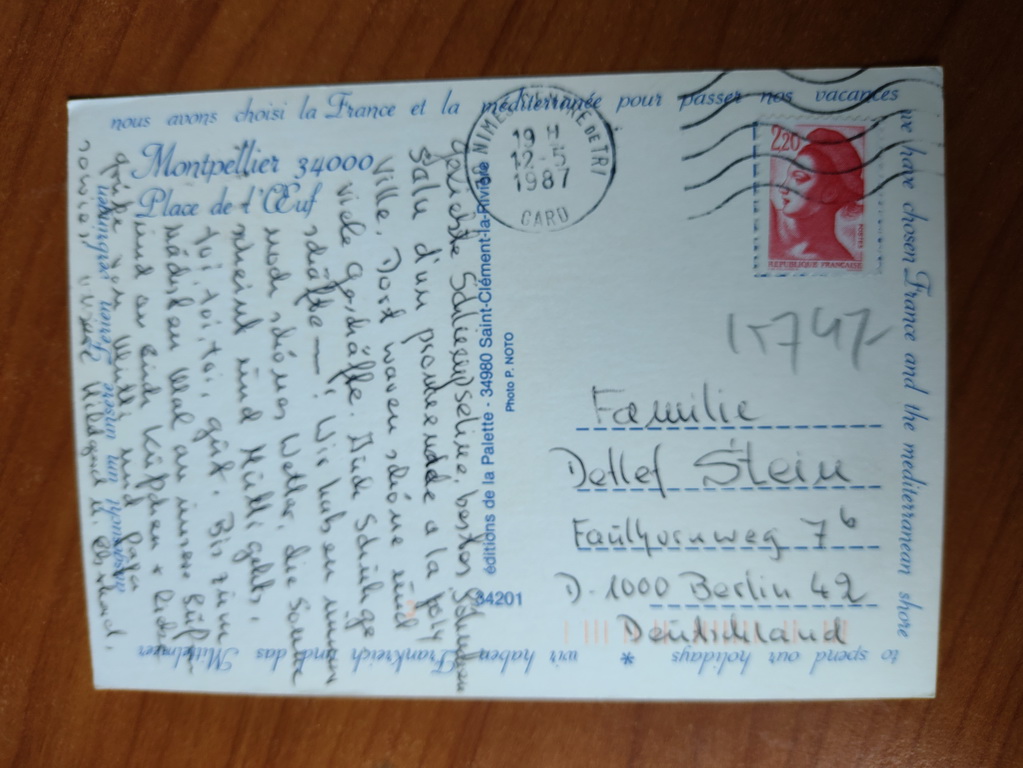 nous avons choisi la France et la méditerranée pour passer nos vacances
we have chosen France and the mediterranean shore
to spend our holidays * wir haben Frankreich und das Mittelmeer
Montpellier 34000
Place de l'Œuf
Salu d'un promenade a la
Ville, Dort waren schöne und
viele Geschäfte. Auch Schuhge
schäfte — ! Wir haben immer
noch schönes Wetter, die Sonne
scheint und Mutti geht's,
toi, toi, toi, gut. Bis zum
nächsten Mal an unsere
und an euch Küßchen + liebe
Grüße von Mutti und Papa
éditions de la Palette - 34980 Saint-Clément-la-Rivière
Photo P. NOTO
34201
NIMES
19 H
12-5
1987
GARD
2,20
POSTES
REPUBLIQUE FRANÇAISE
Familie
Detlef Stein
Faulhornweg 7b
D-1000 Berlin 42
Deutschland